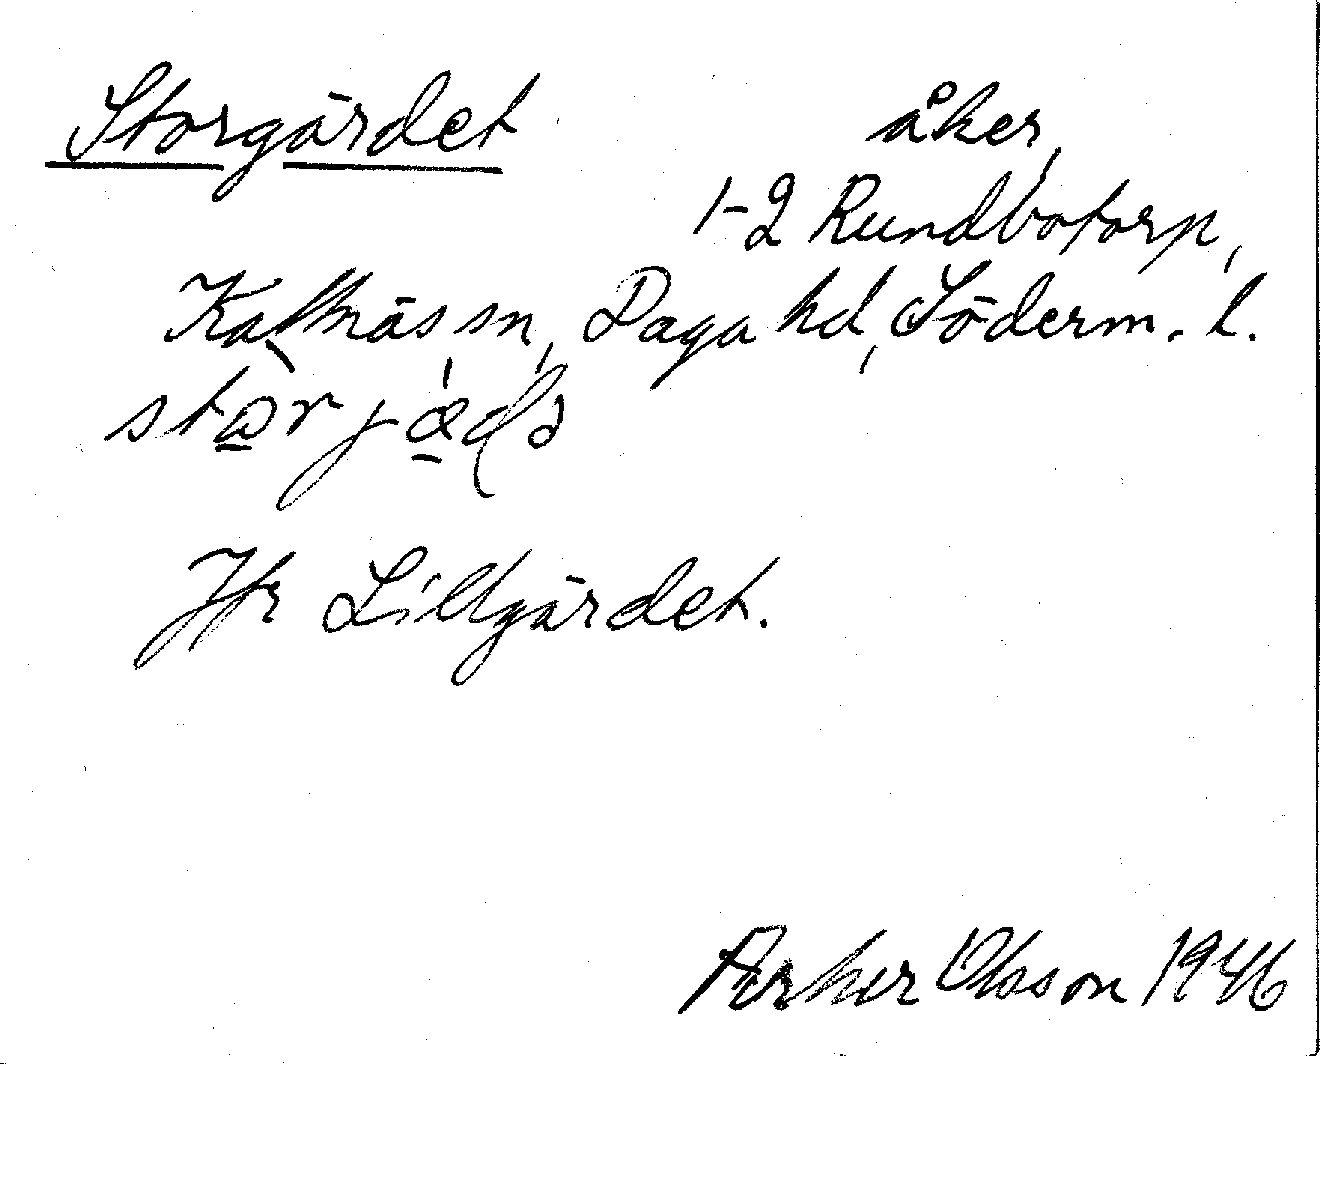 Storgärdet åker,
1-2 Rundbotorp,
Kattnäs sn, Daga hd, Söderm. l.
Jfr Lillgärdet.
Olsson 1946